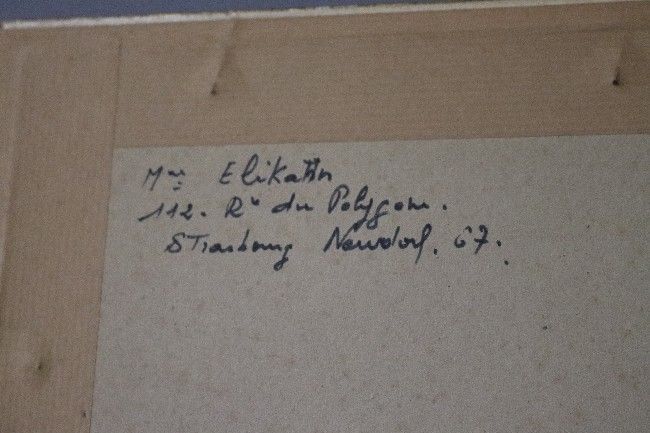 Mme Elikann
112. Re du Polygone.
Strasbourg Neudorf. 67.